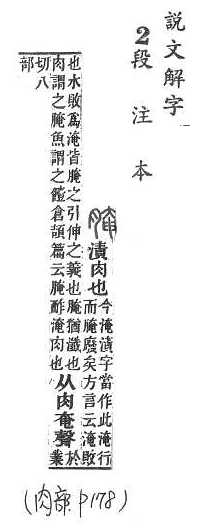 說文解字
2段注本
腌 漬肉也今淹漬字當作此淹行
而腌廢矣方言云淹敗
也水敗爲淹皆腌之引伸之義也腌猶瀸也
肉謂之腌魚謂之饐倉頡篇云腌酢淹肉也
从肉奄聲於
業
切八
部
(肉部 P178)